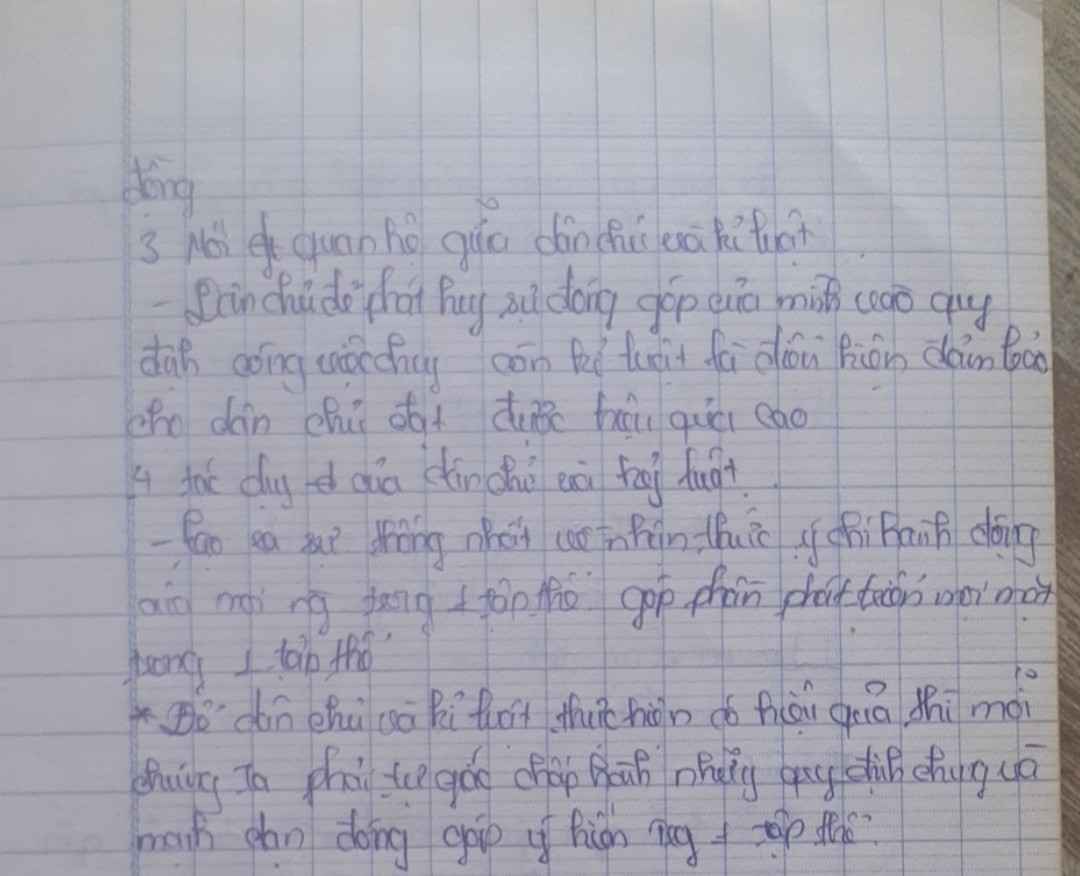 đồng
3 Mối quan hệ giữa dân chủ và kỉ luật
- Dân chủ để phát huy sự đóng góp của mình vào quy
định công việc chung còn kỉ luật là điều kiện đảm bảo
cho dân chủ đạt được hiệu quả cao
4 tác dụng của dân chủ và kỷ luật
- Tạo ra sự thống nhất cao nhận thức ý chí hành động
của mọi ng trong 1 tập thể góp phần phát triển mọi mặt
trong 1 tập thể
* Để dân chủ và kỉ luật thực hiện có hiệu quả thì mỗi
chúng ta phải tự giác chấp hành những quy định chung và
mạnh dạn đóng góp ý kiến 1 tập thể